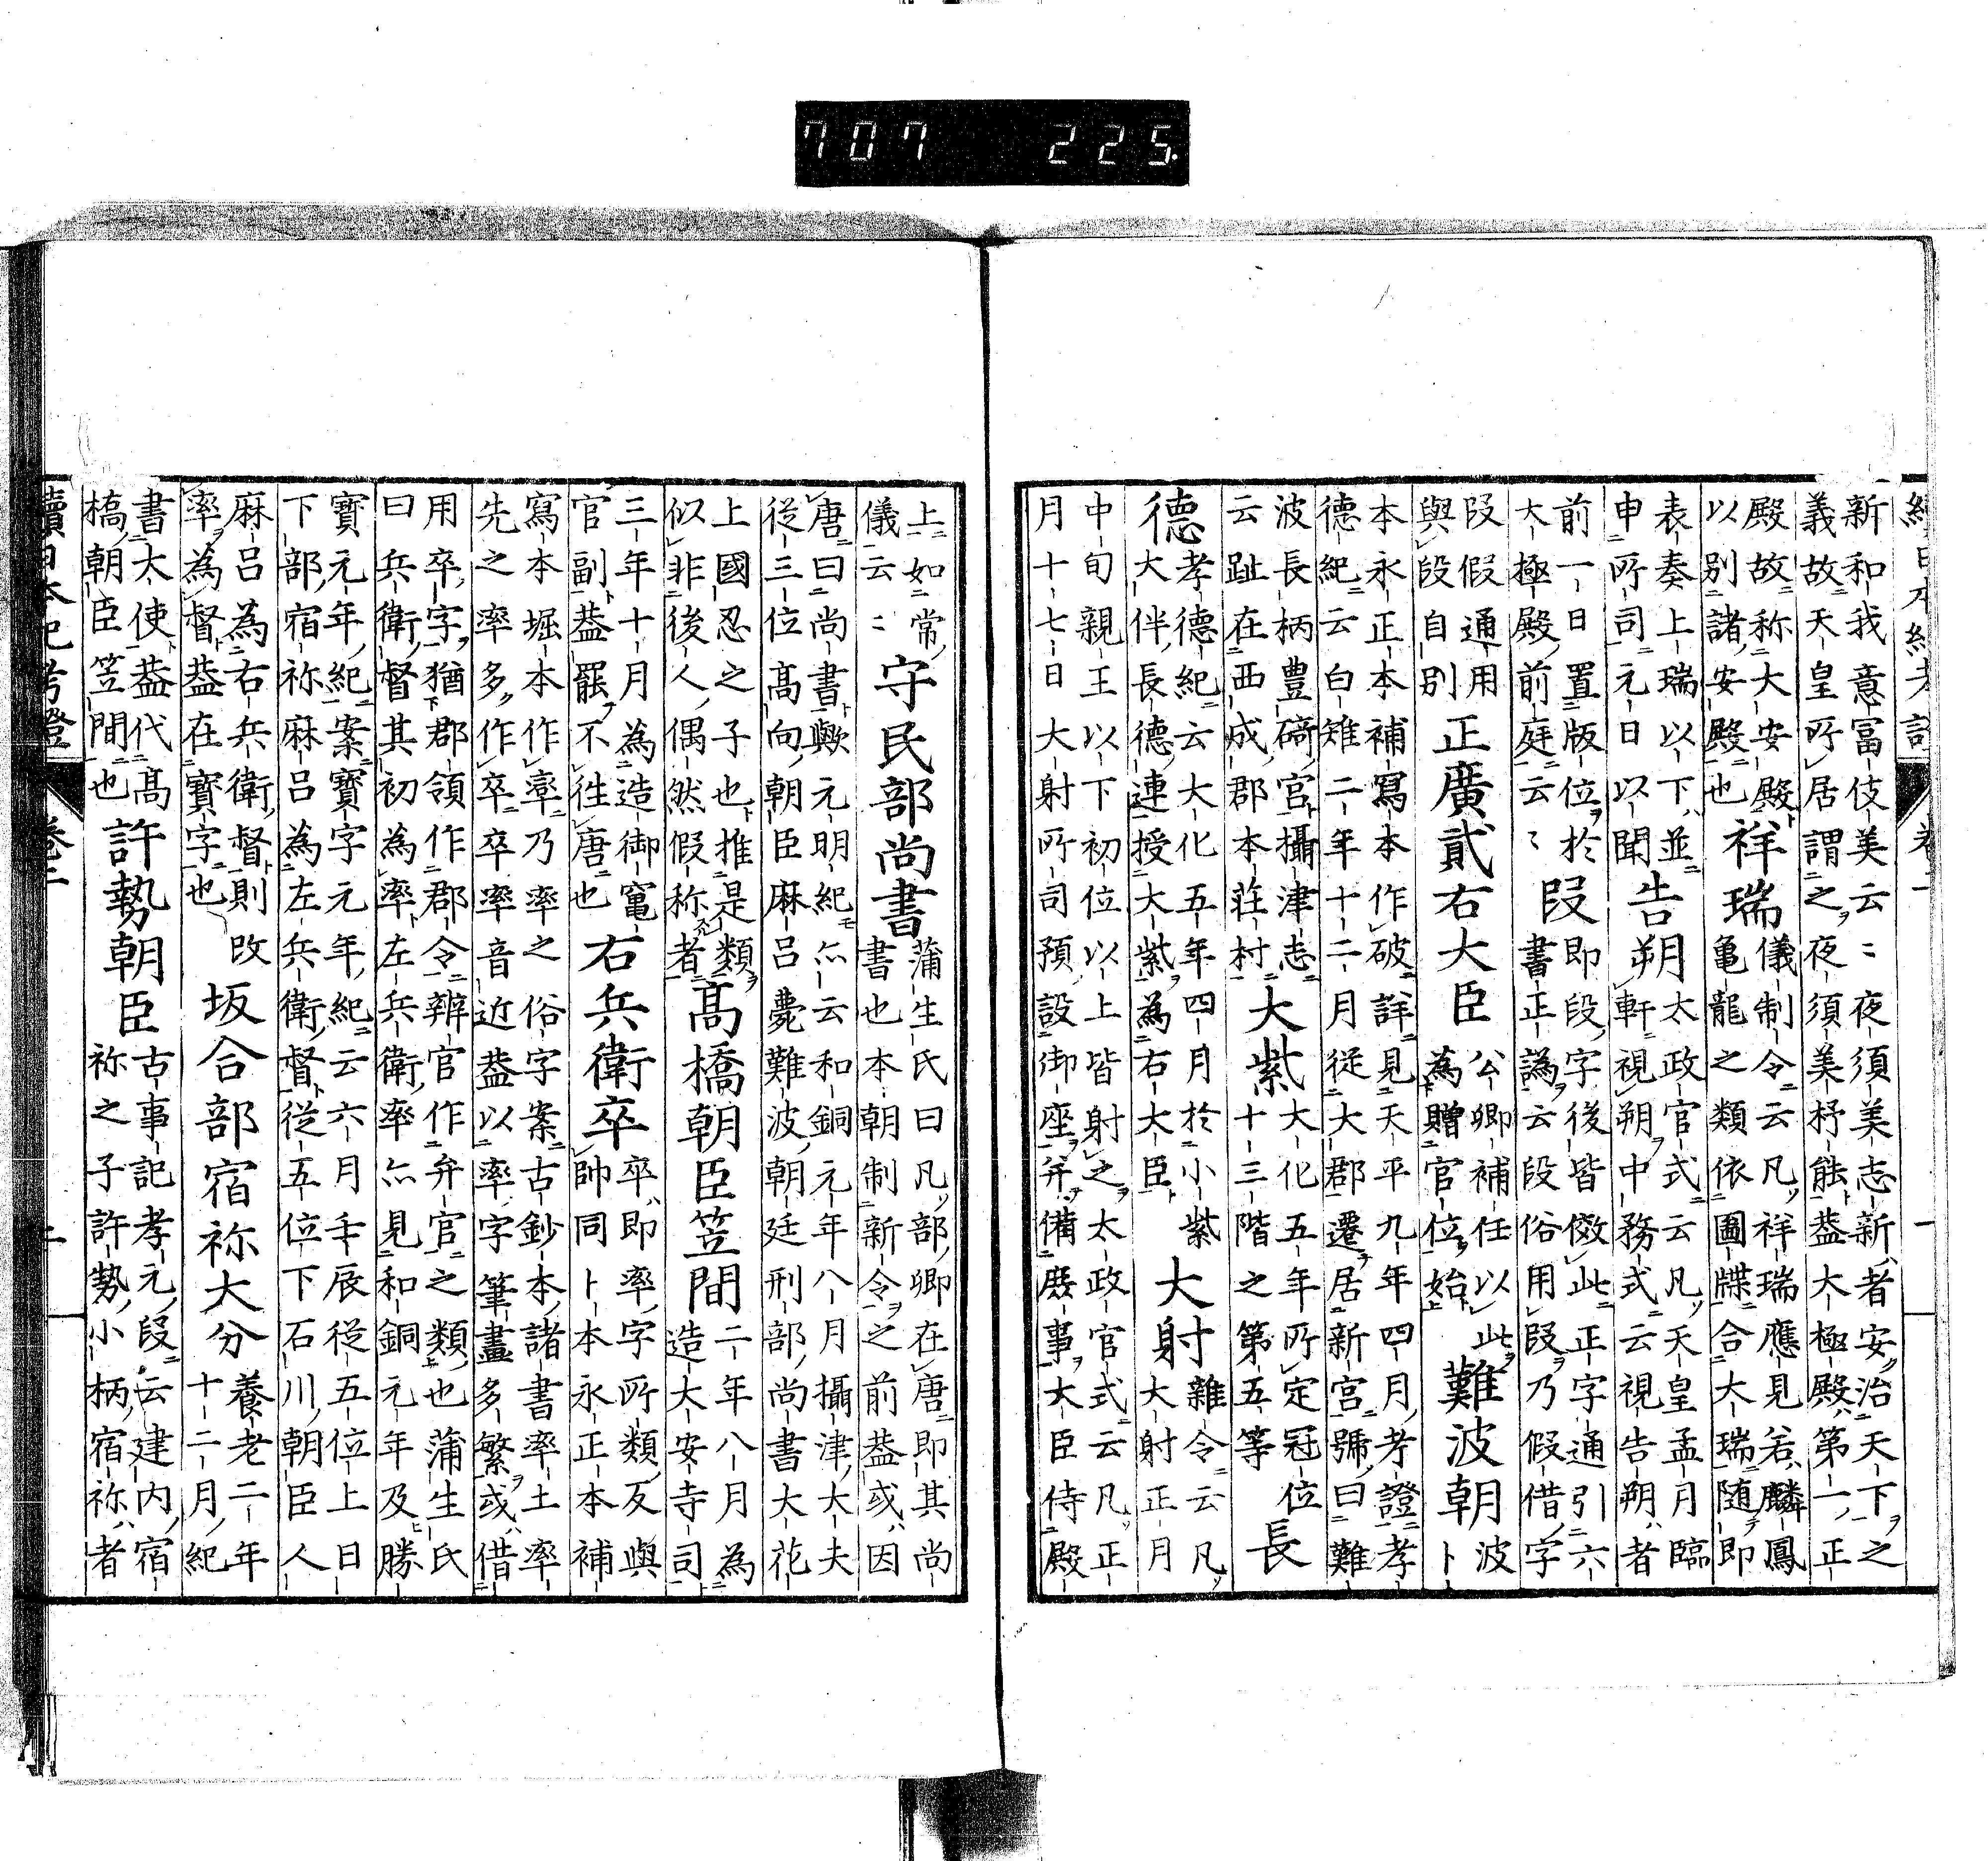 707 225.
新和我意冨伎美云〻夜須美志新者安治天下之
義故天皇所居謂之夜須美杼能葢大極殿第一正
殿故称大安殿 祥瑞 儀制令云凡祥瑞應見若麟鳳
以別諸安殿也 亀龍之類依圖牒合大瑞随即
表奏上瑞以下並 告朔 太政官式云凡天皇孟月臨
申所司元日以聞 軒視朔中務式云視告朔者
前一日置版位於 段 即段字後皆倣此正字通引六
大極殿前庭云〻 書正譌云段俗用叚乃假借字
段假通用 正廣貳右大臣 公卿補任以此 難波朝 波
與段自別 為贈官位始 卜
本永正本補寫本作破詳見天平九年四月考證孝
德紀云白雉二年十二月従大郡遷居新宮號曰難
波長柄豊碕宮攝津志 大紫 大化五年所定冠位 長
云趾在西成郡本荘村 十三階之第五等
德 孝德紀云大化五年四月於小紫 大射 雜令云凡
大伴長德連授大紫為右大臣 大射正月
中旬親王以下初位以上皆射之太政官式云凡正
月十七日大射所司預設御座并備殿事大臣侍殿
上如常 守民部尚書 蒲生氏曰凡部卿在唐即其尚
儀云〻 書也本朝制新令之前葢或因
唐曰尚書歟元明紀亦云和銅元年八月攝津大夫
従三位髙向朝臣麻呂薨難波朝廷刑部尚書大花
上國忍之子也推是類 髙橋朝臣笠間 二年八月為
似非後人偶然假称者 造大安寺司
三年十月為造御竃 右兵衛卒 卒即率字所類反與
官副葢罷不徃唐也 帥同卜本永正本補
寫本堀本作率乃率之俗字案古鈔本諸書率土率
先之率多作卒卒率音近葢以率字筆畫多繁或借
用卒字猶郡領作郡令辨官作弁官之類也蒲生氏
曰兵衛督其初為率左兵衛率亦見和銅元年及勝
寶元年紀案寶字元年紀云六月壬辰従五位上日
下部宿祢麻呂為左兵衛督従五位下石川朝臣人
麻呂為右兵衛督則改 坂合部宿祢大分 養老二年
率為督葢在寶字也 十二月紀
書大使葢代髙 許勢朝臣 古事記孝元段云建内宿
橋朝臣笠間也 祢之子許勢小柄宿祢者
續日本紀考證 巻二